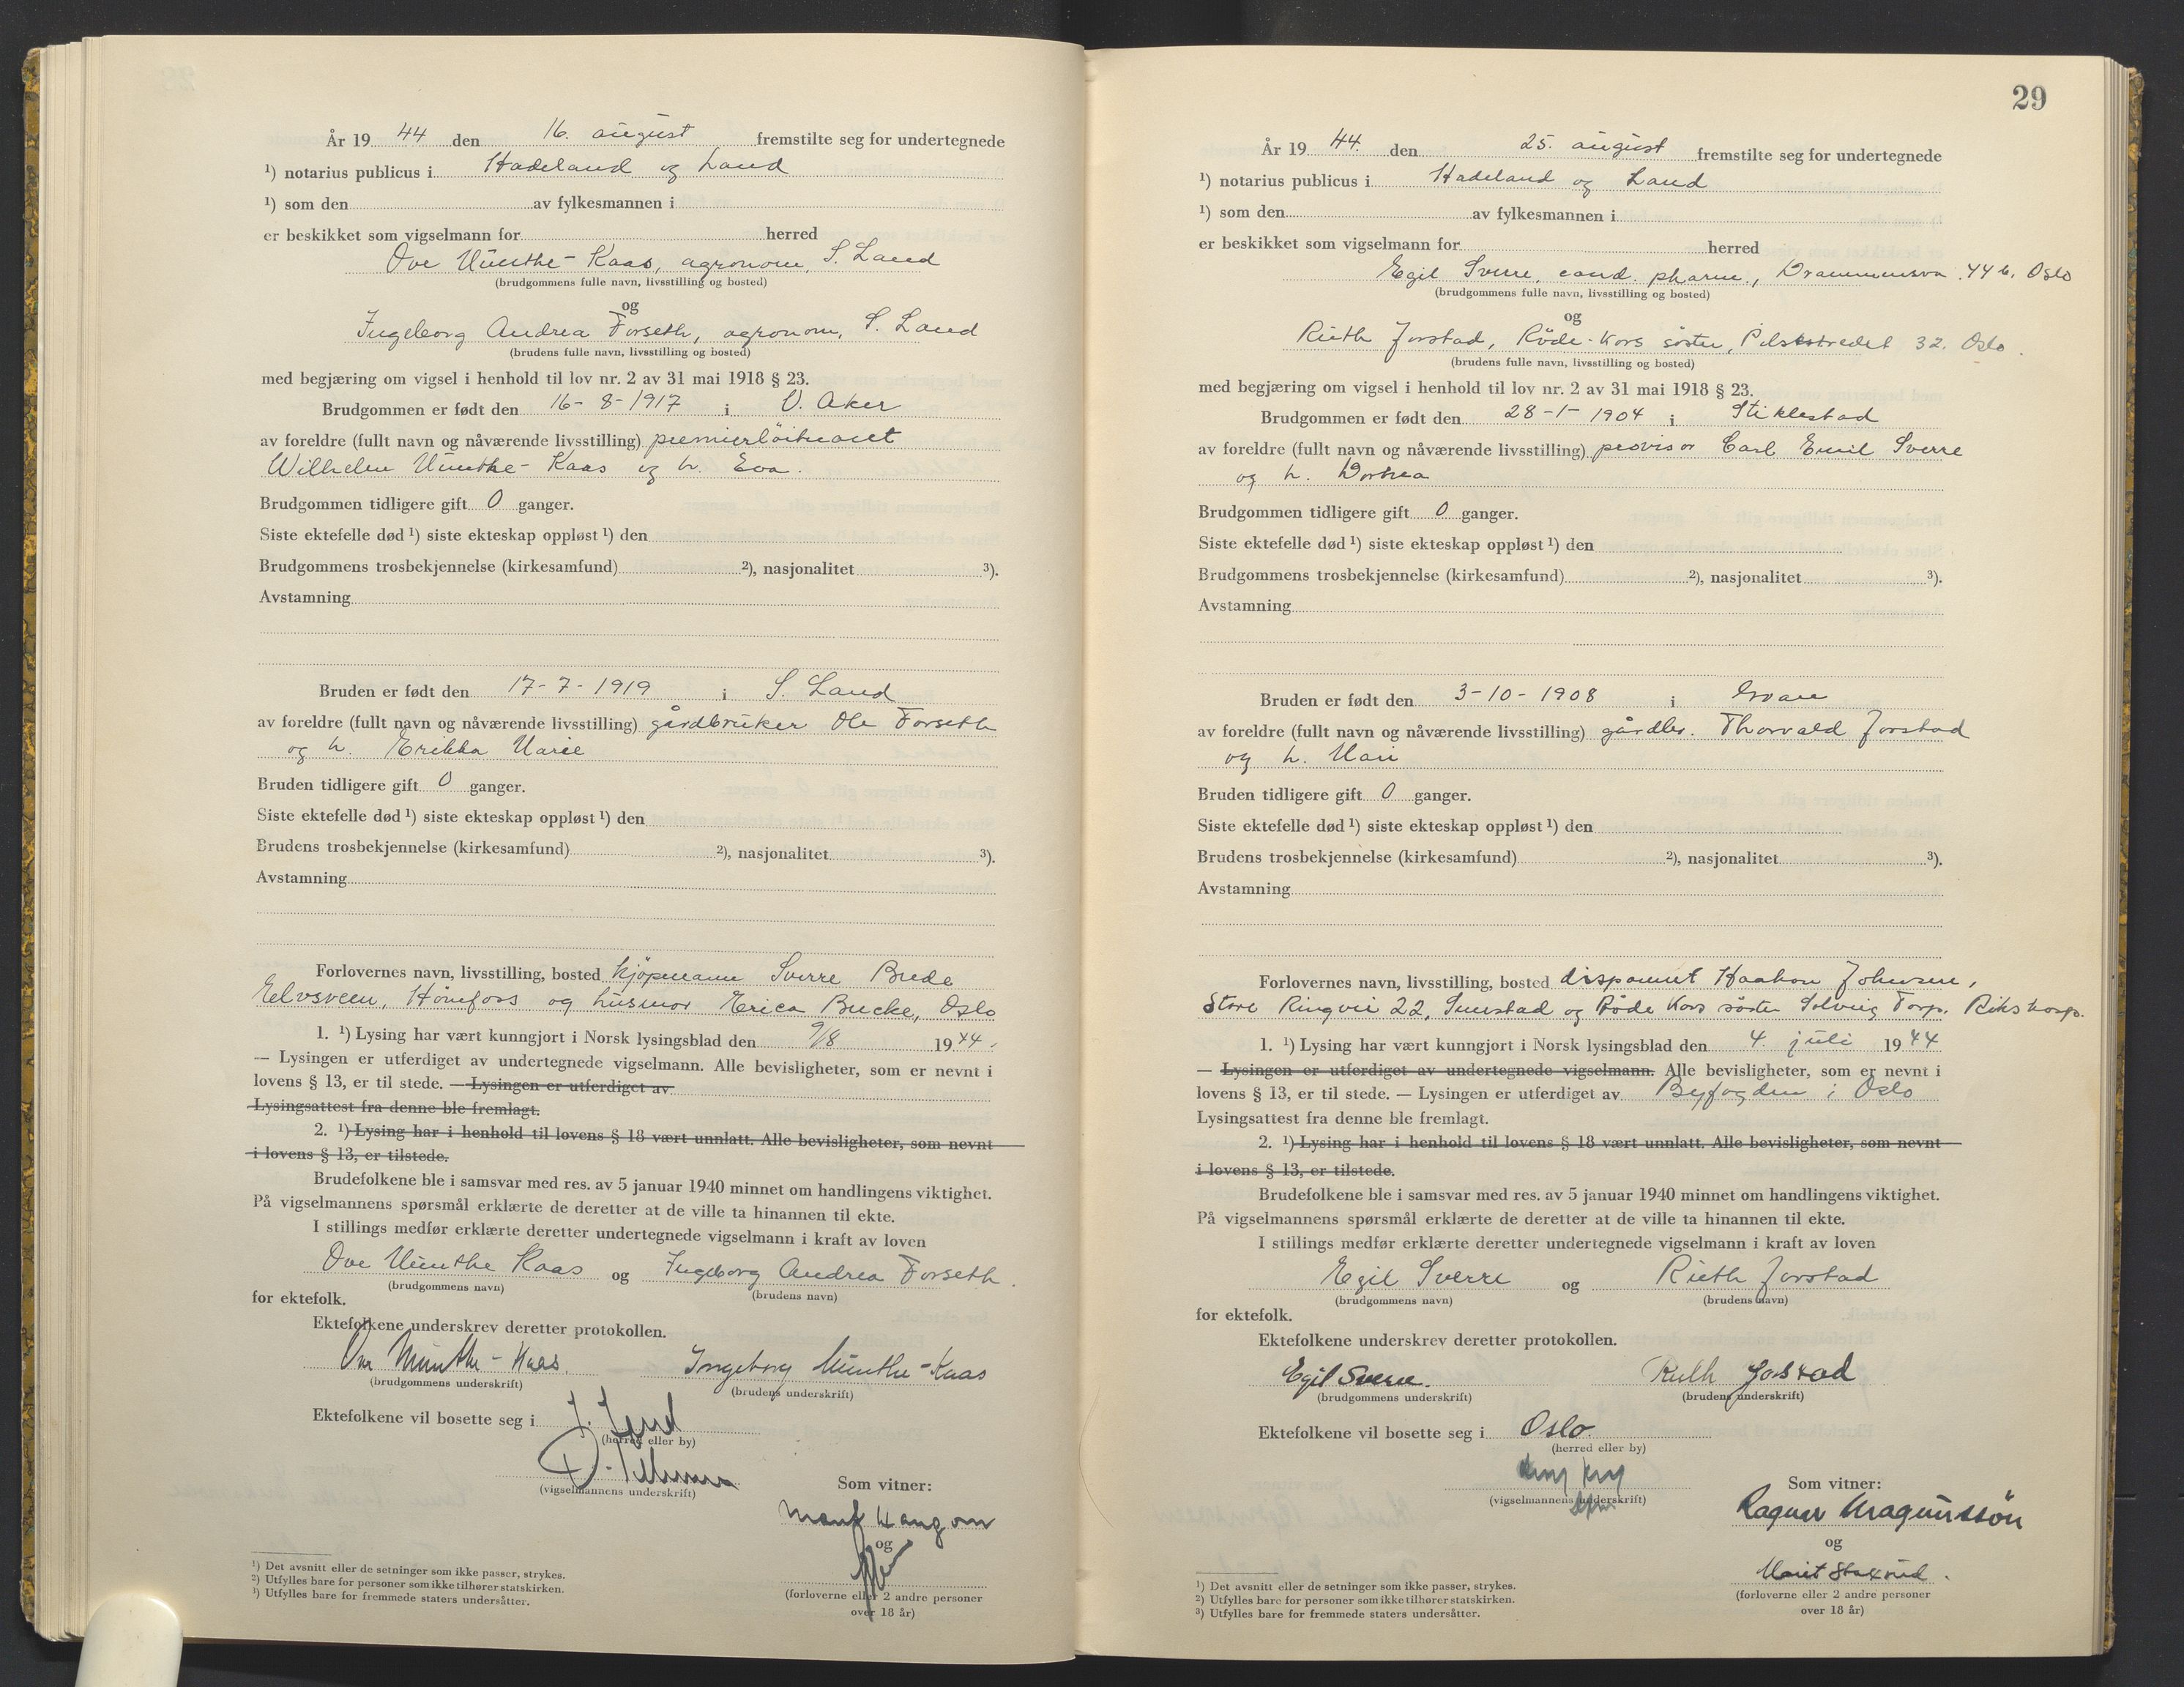 År 1944 den 16. august fremstilte seg for undertegnede
¹) notarius publicus i Hadeland og Land
¹) som den av fylkesmannen i
er beskikket som vigselmann for herred
Ove Munthe-Kaas, agronom, S. Land
(brudgommens fulle navn, livsstilling og bosted)
og
Ingeborg Andrea Forseth, agronom, S. Land
(brudens fulle navn, livsstilling og bosted)
med begjæring om vigsel i henhold til lov nr. 2 av 31 mai 1918 § 23.
Brudgommen er født den 16-8-1917 i V. Aker
av foreldre (fullt navn og nåværende livsstilling) premierløitnant
Wilhelm Munthe-Kaas og h. Eva.
Brudgommen tidligere gift 0 ganger.
Siste ektefelle død ¹) siste ekteskap oppløst ¹) den
Brudgommens trosbekjennelse (kirkesamfund) ²), nasjonalitet ³).
Avstamning
Bruden er født den 17-7-1919 i S. Land
av foreldre (fullt navn og nåværende livsstilling) gårdbruker Ole Forseth
og h. Erikka Marie
Bruden tidligere gift 0 ganger.
Siste ektefelle død ¹) siste ekteskap oppløst ¹) den
Brudens trosbekjennelse (kirkesamfund) ²), nasjonalitet ³).
Avstamning
Forlovernes navn, livsstilling, bosted kjøpmann Sverre Brede
Hønefoss og husmor Erica Bucke, Oslo
1. ¹) Lysing har vært kunngjort i Norsk lysingsblad den 9/8 1944.
— Lysingen er utferdiget av undertegnede vigselmann. Alle bevisligheter, som er nevnt i
lovens § 13, er til stede. — Lysingen er utferdiget av
Lysingsattest fra denne ble fremlagt.
2. ¹) Lysing har i henhold til lovens § 18 vært unnlatt. Alle bevisligheter, som nevnt
i lovens § 13, er tilstede.
Brudefolkene ble i samsvar med res. av 5 januar 1940 minnet om handlingens viktighet.
På vigselmannens spørsmål erklærte de deretter at de ville ta hinannen til ekte.
I stillings medfør erklærte deretter undertegnede vigselmann i kraft av loven
Ove Munthe Kaas og Ingeborg Andrea Forseth.
(brudgommens navn) (brudens navn)
for ektefolk.
Ektefolkene underskrev deretter protokollen.
Ove Munthe-Kaas. Ingeborg Munthe-Kaas
(brudgommens underskrift) (brudens underskrift)
Ektefolkene vil bosette seg i S. Land
(herred eller by)
(vigselmannens underskrift)
Som vitner:
og
(forloverne eller 2 andre personer
over 18 år)
¹) Det avsnitt eller de setninger som ikke passer, strykes.
²) Utfylles bare for personer som ikke tilhører statskirken.
³) Utfylles bare for fremmede staters undersåtter.
29
År 1944. den 25. august fremstilte seg for undertegnede
¹) notarius publicus i Hadeland og Land
¹) som den av fylkesmannen i
er beskikket som vigselmann for herred
Egil Sverre, cand. pharm., Drammensvn. 44 b. Oslo
(brudgommens fulle navn, livsstilling og bosted)
og
Ruth Jorstad, Røde-Kors søster, Pilestredet 32. Oslo.
(brudens fulle navn, livsstilling og bosted)
med begjæring om vigsel i henhold til lov nr. 2 av 31 mai 1918 § 23.
Brudgommen er født den 28-1-1904 i Stiklestad
av foreldre (fullt navn og nåværende livsstilling) provisor Carl Emil Sverre
og h. Dorhea
Brudgommen tidligere gift 0 ganger.
Siste ektefelle død ¹) siste ekteskap oppløst ¹) den
Brudgommens trosbekjennelse (kirkesamfund) ²), nasjonalitet ³).
Avstamning
Bruden er født den 3-10-1908 i Gran
av foreldre (fullt navn og nåværende livsstilling) gårdbr. Thorvald Jorstad
og h. Mari
Bruden tidligere gift 0 ganger.
Siste ektefelle død ¹) siste ekteskap oppløst ¹) den
Brudens trosbekjennelse (kirkesamfund) ²), nasjonalitet ³).
Avstamning
Forlovernes navn, livsstilling, bosted disponent Haakon Johnsen,
Store Ringvei 22, Smestad og Røde Kors søster Solveig Torp. Rikshosp.
1. ¹) Lysing har vært kunngjort i Norsk lysingsblad den 4. juli 1944
— Lysingen er utferdiget av undertegnede vigselmann. Alle bevisligheter, som er nevnt i
lovens § 13, er til stede. — Lysingen er utferdiget av Byfogden i Oslo
Lysingsattest fra denne ble fremlagt.
2. ¹) Lysing har i henhold til lovens § 18 vært unnlatt. Alle bevisligheter, som nevnt
i lovens § 13, er tilstede.
Brudefolkene ble i samsvar med res. av 5 januar 1940 minnet om handlingens viktighet.
På vigselmannens spørsmål erklærte de deretter at de ville ta hinannen til ekte.
I stillings medfør erklærte deretter undertegnede vigselmann i kraft av loven
Egil Sverre og Ruth Jorstad
(brudgommens navn) (brudens navn)
for ektefolk.
Ektefolkene underskrev deretter protokollen.
Egil Sverre. Ruth Jorstad
(brudgommens underskrift) (brudens underskrift)
Ektefolkene vil bosette seg i Oslo.
(herred eller by)
(vigselmannens underskrift)
Som vitner:
Ragnar Magnussön
og
Marit Staxrud.
(forloverne eller 2 andre personer
over 18 år)
¹) Det avsnitt eller de setninger som ikke passer, strykes.
²) Utfylles bare for personer som ikke tilhører statskirken.
³) Utfylles bare for fremmede staters undersåtter.